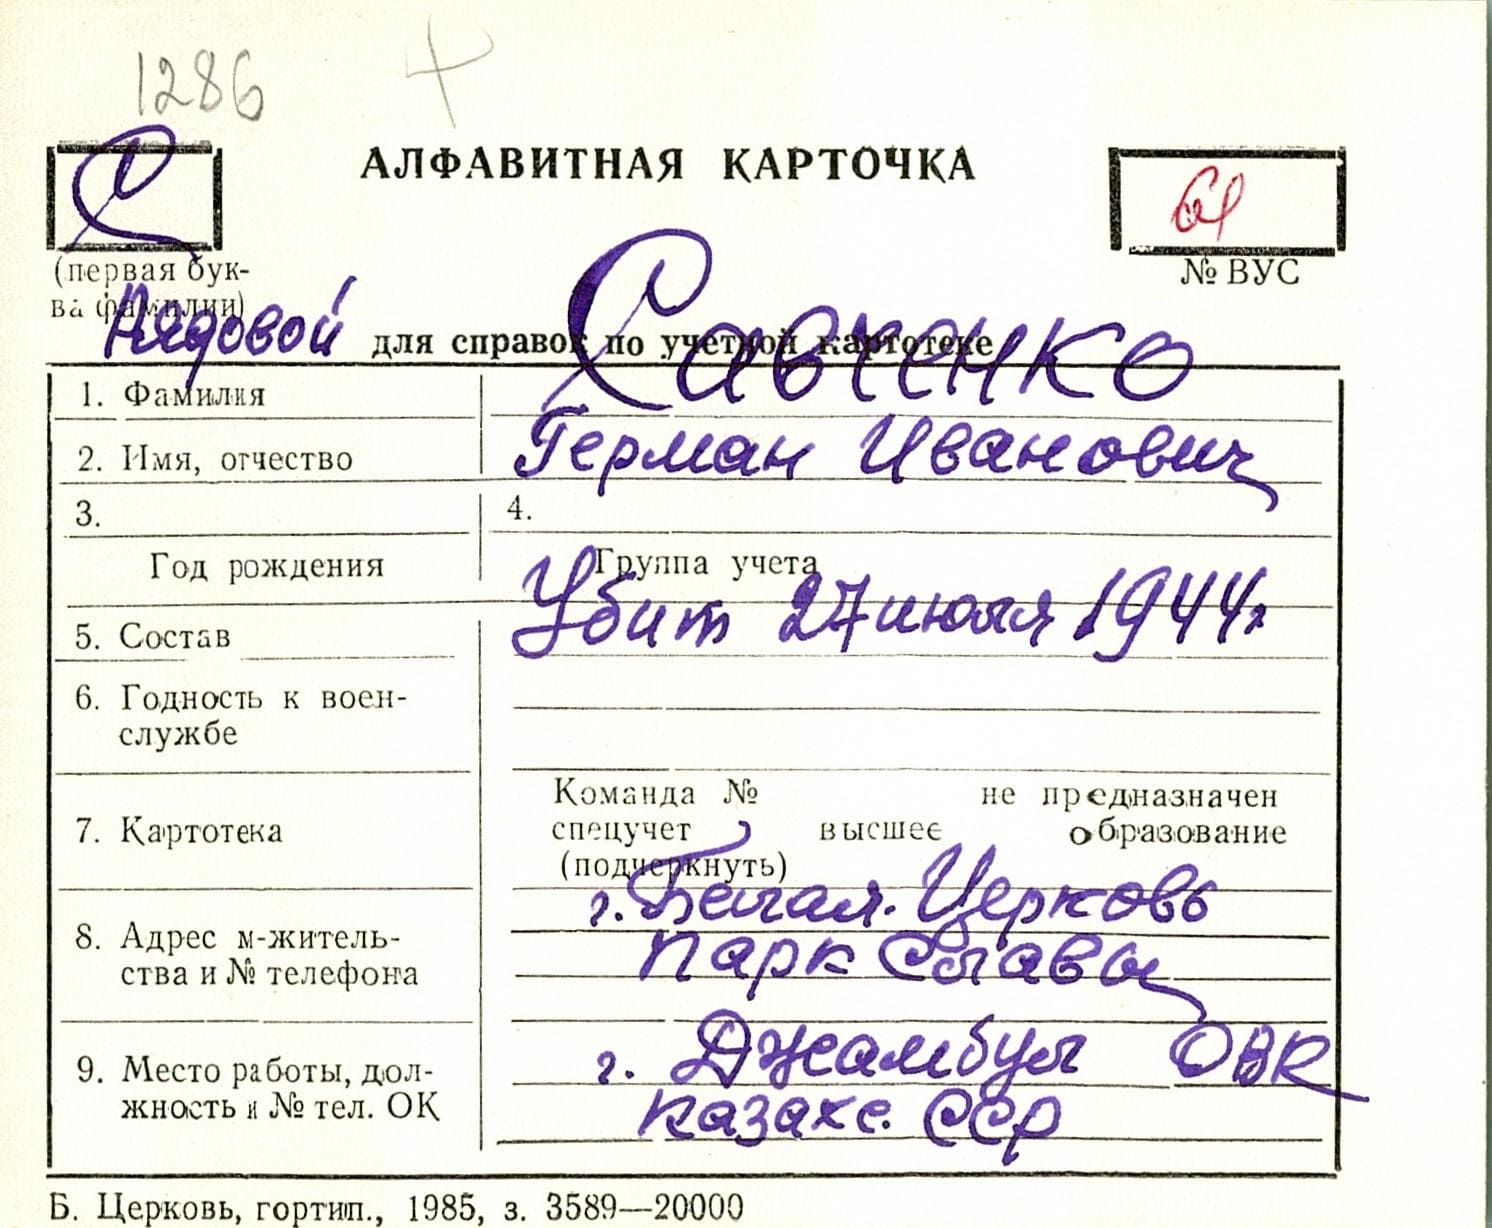 1286
С
АЛФАВИТНАЯ КАРТОЧКА
61
(первая бук-
ва фамилии)
№ ВУС
Рядовой
для справок по учетной картотеке
1. Фамилия
Савченко
2. Имя, отчество
Герман Иванович
3.
4.
Год рождения
Группа учета
Убит 27 июля 1944г
5. Состав
6. Годность к воен-
службе
7. Картотека
Команда № не предназначен
спецучет высшее образование
(подчеркнуть)
8. Адрес м-житель-
ства и № телефона
г. Белая. Церковь
парк Славы
9. Место работы, дол-
жность и № тел. ОК
г. Джамбул ОВК
Казахс. ССР
Б. Церковь, гортип., 1985, з. 3589—20000